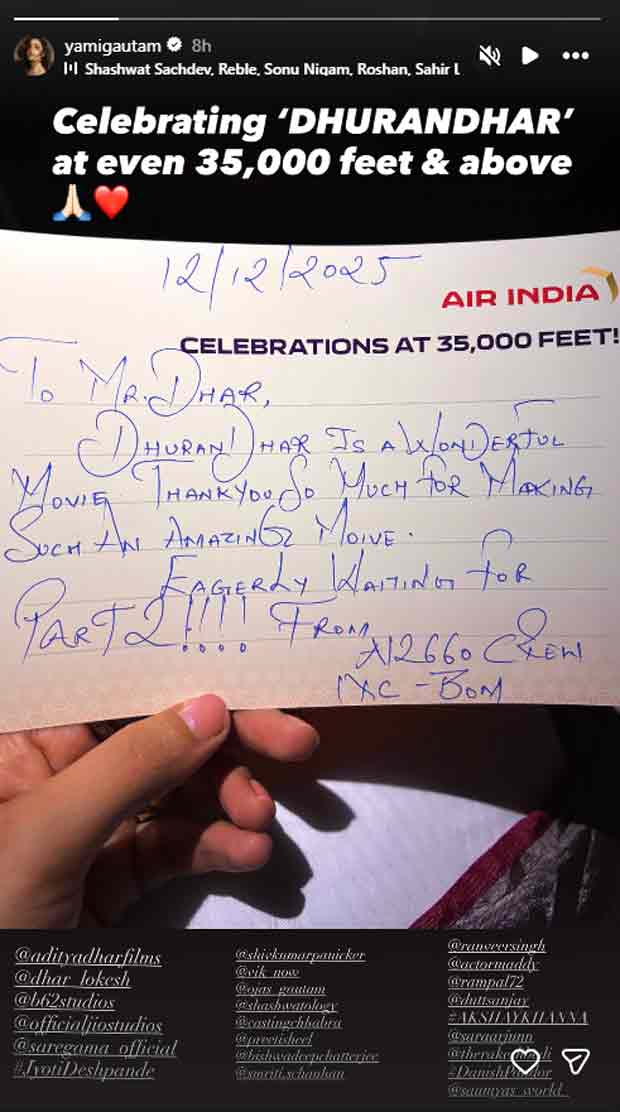 yamigautam 8h
Shashwat Sachdev, Reble, Sonu Nigam, Roshan, Sahir L
Celebrating ‘DHURANDHAR’
at even 35,000 feet & above
🙏🏻❤️
12/12/2025
AIR INDIA
CELEBRATIONS AT 35,000 FEET!
To Mr. DHAR,
DHURANDHAR IS A WONDERFUL
MOVIE THANKYOU SO MUCH FOR MAKING
SUCH AN AMAZING MOIVE.
EAGERLY WAITING FOR
PART 2!!!! FROM
AI2660 CREW
IXC - BOM
@adityadharfilms
@dhar_lokesh
@b62studios
@officialjiostudios
@saregama_official
#JyotiDeshpande
@shivkumarpanicker
@vik_now
@ojas_gautam
@shashwatology
@castingchhabra
@preetisheel
@bishwadeepchatterjee
@smriti.schauhan
@ranveersingh
@actormaddy
@rampal72
@duttsanjay
#AKSHAYKHANNA
@saraarjunn
#DanishPandor
@saumyas_world_